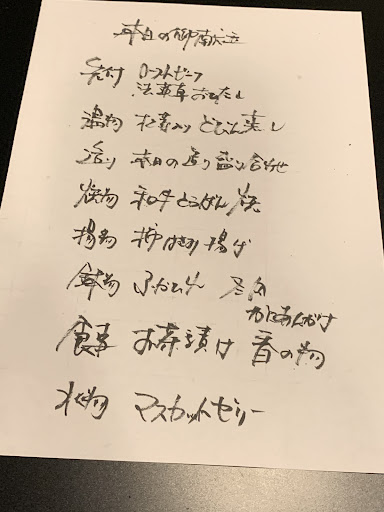 本日の御献立
先付 ローストビーフ
法蓮草おひたし
温物 松茸入り どびん蒸し
造り 本日の造り盛り合わせ
焼物 和牛とうばん焼
揚物 柿はさみ揚げ
ふかひれ 冬瓜
かにあんかけ
食事 お茶漬け 香の物
水物 マスカットゼリー